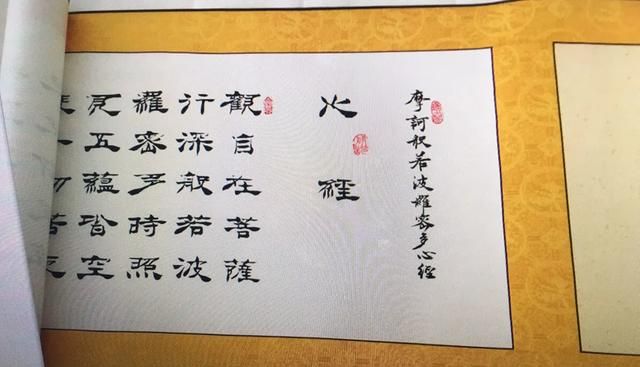 摩訶般若波羅密多心經
心經
觀自在菩薩
行深般若波
羅密多時照
見五蘊皆空